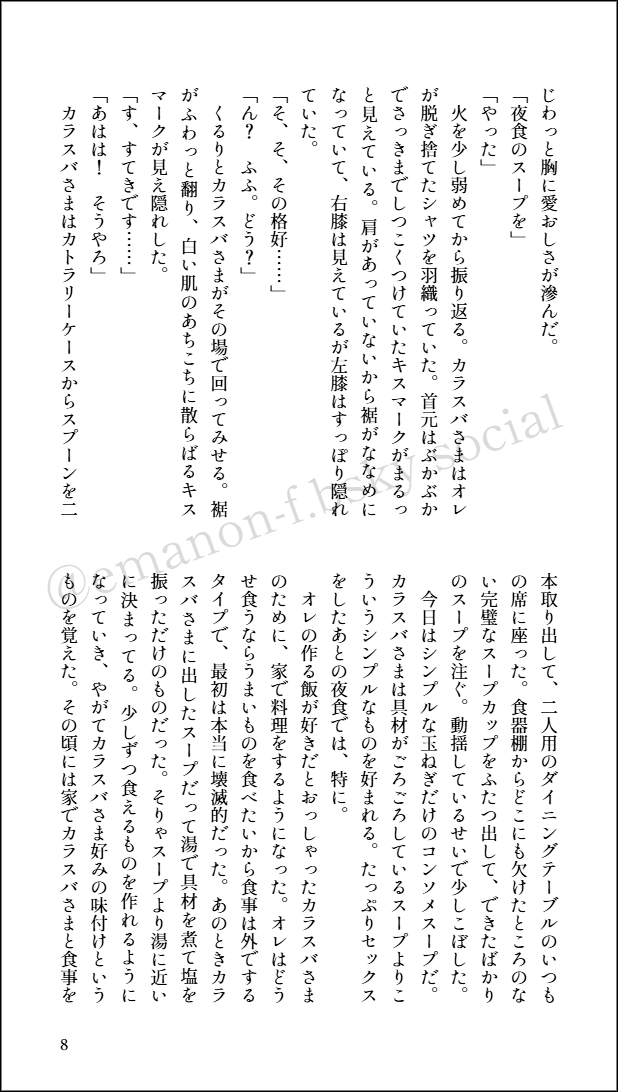 じわっと胸に愛おしさが滲んだ。
「夜食のスープを」
「やった」
　火を少し弱めてから振り返る。カラスバさまはオレ
が脱ぎ捨てたシャツを羽織っていた。首元はぶかぶか
でさっきまでしつこくつけていたキスマークがまるっ
と見えている。肩があっていないから裾がななめに
なっていて、右膝は見えているが左膝はすっぽり隠れ
ていた。
「そ、そ、その格好……」
「ん？　ふふ。どう？」
　くるりとカラスバさまがその場で回ってみせる。裾
がふわっと翻り、白い肌のあちこちに散らばるキス
マークが見え隠れした。
「す、すてきです……」
「あはは！　そうやろ」
　カラスバさまはカトラリーケースからスプーンを二
本取り出して、二人用のダイニングテーブルのいつも
の席に座った。食器棚からどこにも欠けたところのな
い完璧なスープカップをふたつ出して、できたばかり
のスープを注ぐ。動揺しているせいで少しこぼした。
　今日はシンプルな玉ねぎだけのコンソメスープだ。
カラスバさまは具材がごろごろしているスープよりこ
ういうシンプルなものを好まれる。たっぷりセックス
をしたあとの夜食では、特に。
　オレの作る飯が好きだとおっしゃったカラスバさま
のために、家で料理をするようになった。オレはどう
せ食うならうまいものを食べたいから食事は外でする
タイプで、最初は本当に壊滅的だった。あのときカラ
スバさまに出したスープだって湯で具材を煮て塩を
振っただけのものだった。そりゃスープより湯に近い
に決まってる。少しずつ食えるものを作れるように
なっていき、やがてカラスバさま好みの味付けという
ものを覚えた。その頃には家でカラスバさまと食事を
8
@emanon-f.bsky.social